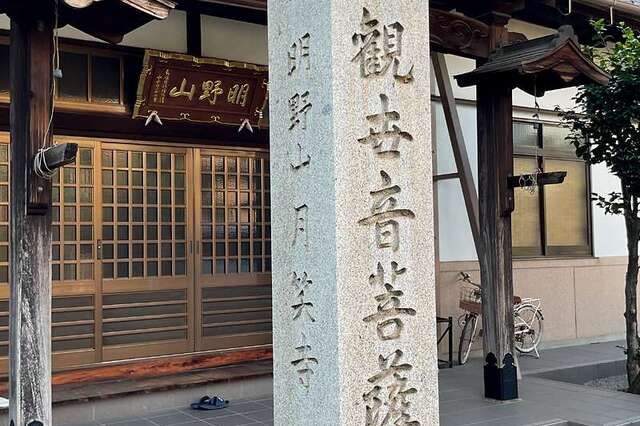 山野明
明野山月笑寺
観世音菩薩